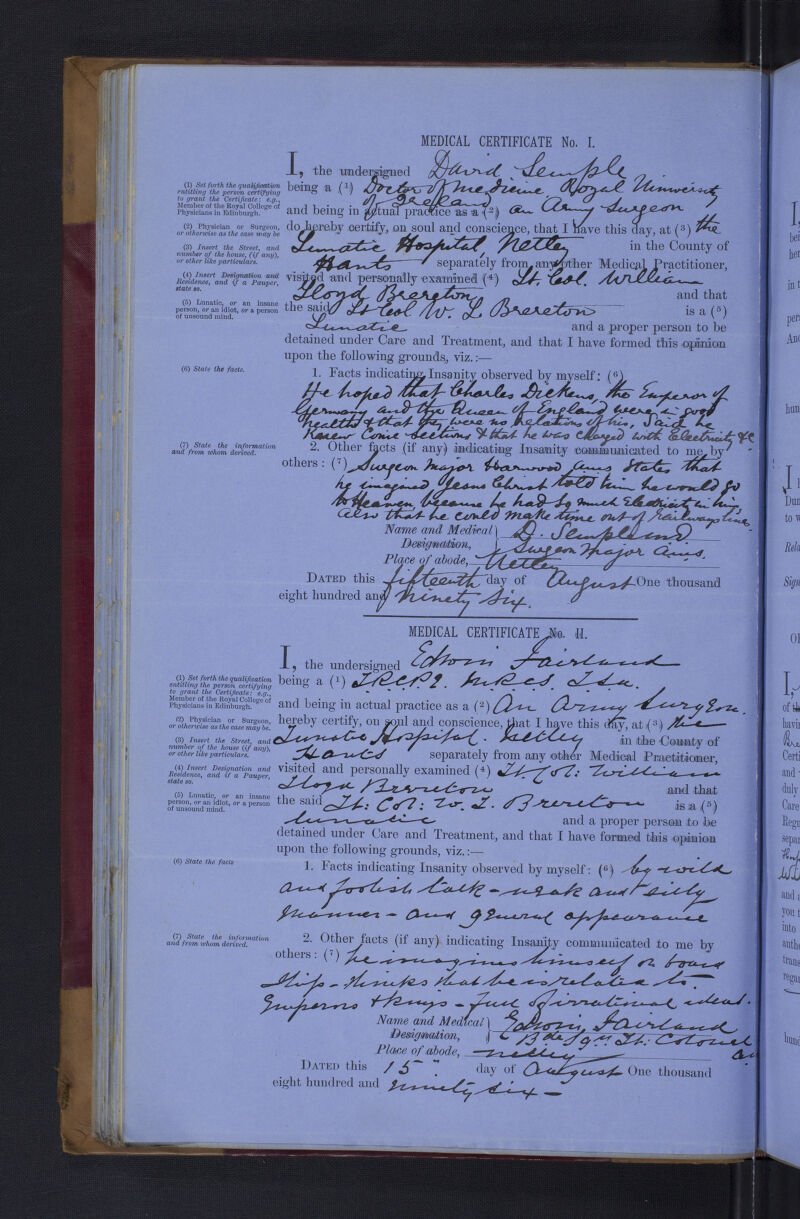 MEDICAL CERTIFICATE No. I.
I, the undersigned David Semple
(1) Set forth the qualification entitling the person certifying to grant the Certificate; e.g., Member of the Royal College of Physicians in Edinburgh.
being a (1) Doctor of Medicine Royal University
of Ireland
and being in actual practice as a (2) an Army Surgeon
(2) Physician or Surgeon, or otherwise as the case may be
do hereby certify, on soul and conscience, that I have this day, at (3) the
(3) Insert the Street, and number of the house, (if any), or other like particulars.
Lunatic Hospital Netley in the County of
Hants separately from any other Medical Practitioner,
(4) Insert Designation and Residence, and if a Pauper, state so.
visited and personally examined (4) Lt. Col. William
Lloyd Brereton and that
(5) Lunatic, or an insane person, or an idiot, or a person of unsound mind.
the said Lt Col W. L. Brereton is a (5)
Lunatic and a proper person to be
detained under Care and Treatment, and that I have formed this opinion
upon the following grounds, viz.:—
(6) State the facts.
1. Facts indicating Insanity observed by myself: (6)
He hoped that Charles Dickens, the Emperor of
Germany and the Queen of England were in good
health & that they were no relations of his, Said he
knew Conic Sections & that he was charged with Electricity &c
(7) State the information and from whom derived.
2. Other facts (if any) indicating Insanity communicated to me by
others: (7) Surgeon Major Harwood Ams States that
he imagined Jesus Christ told him he would go
to Heaven, because he had so much Electricity in him,
also that he could make time out of railways time
Name and Medical Designation, D. Semple MD
Surgeon Major Ams.
Place of abode, Netley
DATED this fifteenth day of August One thousand
eight hundred and Ninety Six.
MEDICAL CERTIFICATE No. II.
I, the undersigned Edwin Fairland
(1) Set forth the qualification entitling the person certifying to grant the Certificate; e.g., Member of the Royal College of Physicians in Edinburgh.
being a (1) L.R.C.P.I. M.R.C.S. L.S.A.
and being in actual practice as a (2) An Army Surgeon.
(2) Physician or Surgeon, or otherwise as the case may be.
hereby certify, on soul and conscience, that I have this day, at (3) the
(3) Insert the Street, and number of the house (if any), or other like particulars.
Lunatic Hospital. Netley in the County of
Hants separately from any other Medical Practitioner,
(4) Insert Designation and Residence, and if a Pauper, state so.
visited and personally examined (4) Lt. Col: William
Lloyd Brereton and that
(5) Lunatic, or an insane person, or an idiot, or a person of unsound mind.
the said Lt: Col: W. L. Brereton is a (5)
lunatic and a proper person to be
detained under Care and Treatment, and that I have formed this opinion
upon the following grounds, viz.:—
(6) State the facts
1. Facts indicating Insanity observed by myself: (6) by wild
and foolish talk - weak and silly
manner - and general appearance
(7) State the information and from whom derived.
2. Other facts (if any) indicating Insanity communicated to me by
others: (7) he imagines himself on board
Ship - thinks that he is related to
Emperors & kings - full of irrational ideas.
Name and Medical Designation, Edwin Fairland
Bde Sgn Lt: Colonel
Place of abode, Netley
DATED this 15" day of August One thousand
eight hundred and ninety six -